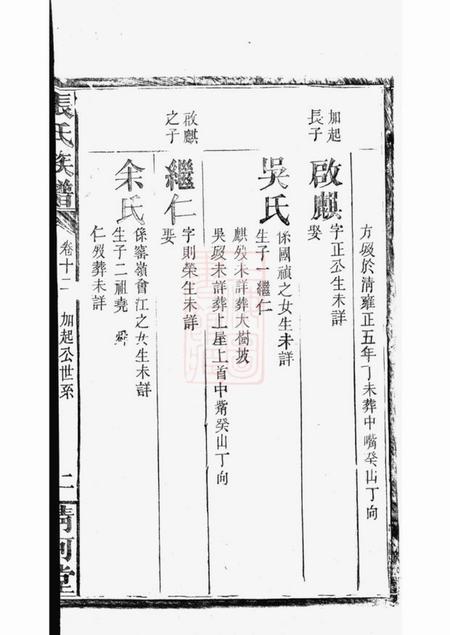 方歿於清雍正五年丁未葬中嘴癸山丁向
加起
長子
啟麒
字正公生未詳
娶
吳氏
係國禎之女生未詳
生子一繼仁
麒歿未詳葬大樹坡
吳歿未詳葬上屋上首中嘴癸山丁向
啟麒
之子
繼仁
字則榮生未詳
娶
余氏
係寨嶺會江之女生未詳
生子二祖堯 舜
仁歿葬未詳
張氏族譜
卷十二
加起公世系
二
清河堂